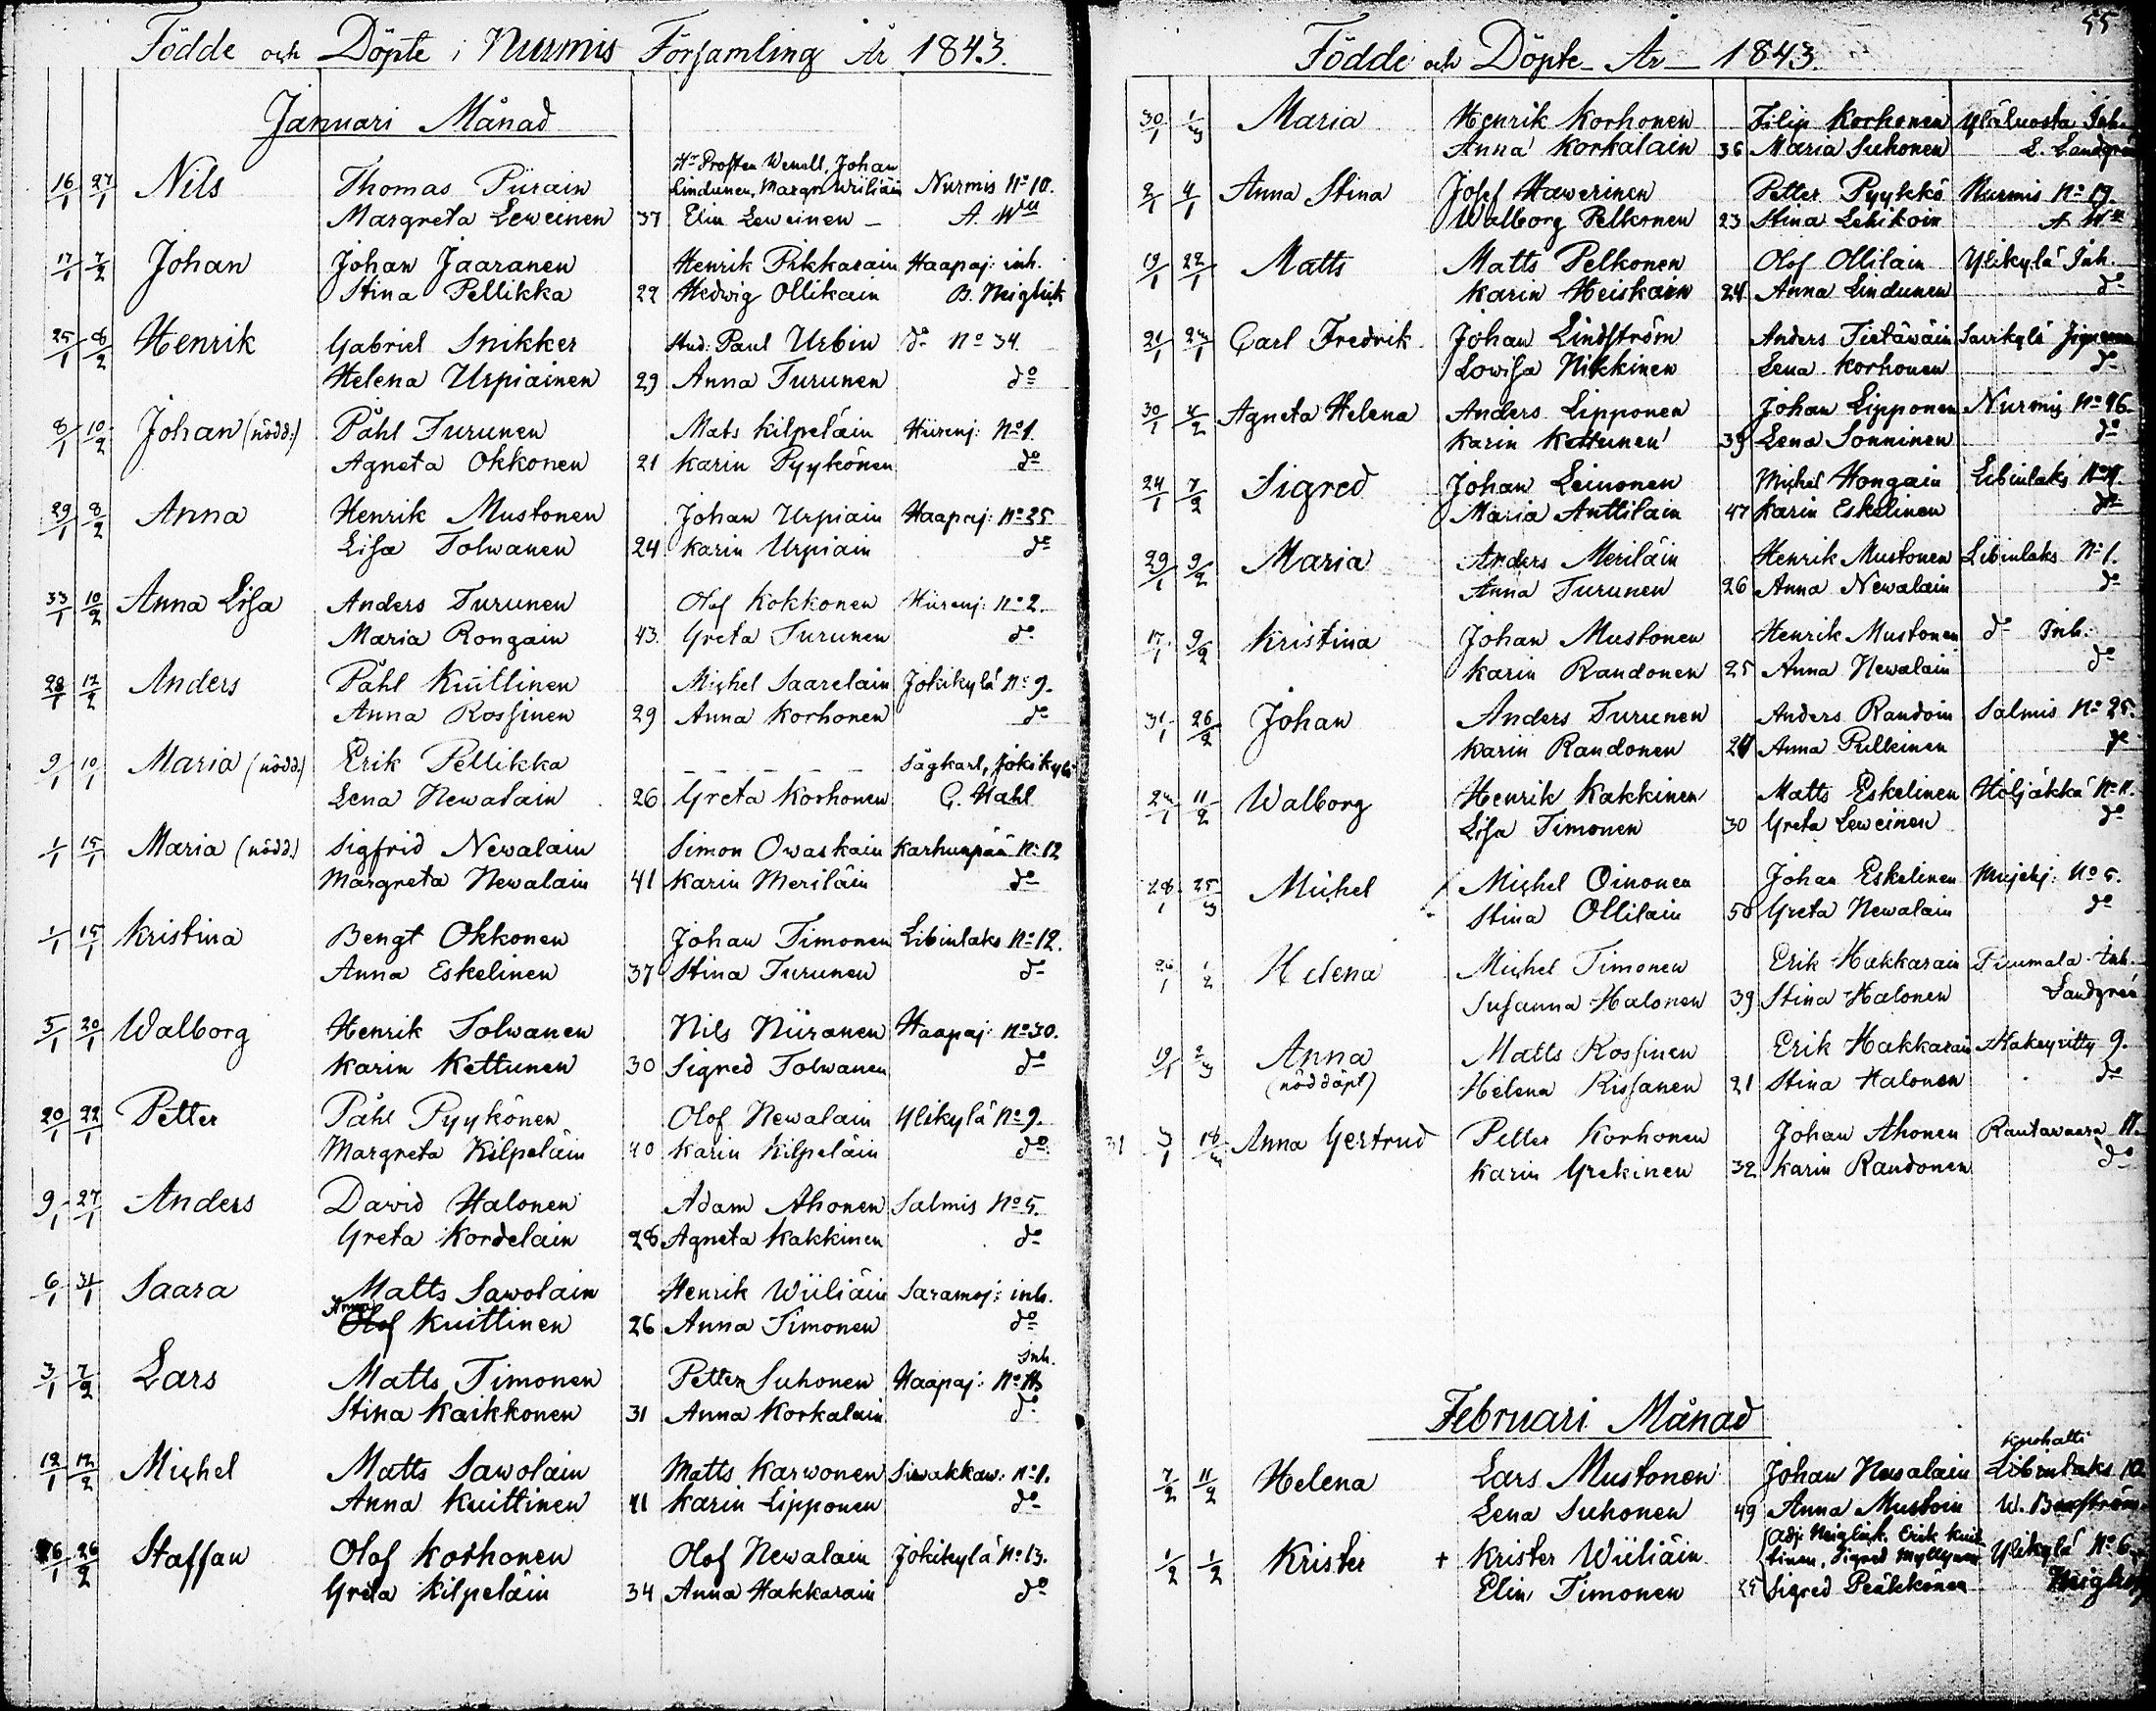 Födde och Döpte i Nurmis Församling År 1843.
Januari Månad
Hr Prosten Wenell, Johan
16/1 27/1 Nils Thomas Piirain Lindunen, Margr. Wiiliäin Nurmis No 10.
Margreta Leweinen 37 Elin Leweinen – A. Wll
17/1 7/2 Johan Johan Jaaranen Henrik Pikkarain Haapaj: inh.
Stina Pellikka 22 Hedwig Ollikain B. Neiglick
25/1 8/2 Henrik Gabriel Snikker Stud: Paul Urbin do No 34.
Helena Urpiainen 29 Anna Turunen do
8/1 10/2 Johan (nödd:) Påhl Turunen Mats Kilpeläin Hiirenj: No 1.
Agneta Okkonen 21 Karin Pyykönen do
29/1 8/2 Anna Henrik Mustonen Johan Urpiain Haapaj: No 25
Lisa Tolwanen 24 Karin Urpiain do
33/1 10/2 Anna Lisa Anders Turunen Olof Kokkonen Hiirenj: No 2.
Maria Rongain 43. Greta Turunen do
28/1 12/2 Anders Påhl Kuittinen Michel Saarelain Jokikylä No 9.
Anna Rossinen 29 Anna Korhonen do
9/1 10/1 Maria (nödd.) Erik Pellikka – – – – – Sågkarl, Jokikylä
Lena Newalain 26 Greta Korhonen G. Hahl
1/1 15/1 Maria (nödd.) Sigfrid Newalain Simon Owaskain Karhunpää No 12
Margreta Newalain 41 Karin Meriläin do
1/1 15/1 Kristina Bengt Okkonen Johan Timonen Libinlaks No 12.
Anna Eskelinen 37 Stina Turunen do
5/1 20/1 Walborg Henrik Tolwanen Nils Niiranen Haapaj: No 30.
Karin Kettunen 30 Sigred Tolwanen do
20/1 22/1 Petter Påhl Pyykönen Olof Newalain Ylikylä No 9.
Margreta Kilpeläin 40 Karin Kilpeläin do
9/1 27/1 Anders David Halonen Adam Ahonen Salmis No 5.
Greta Kordelain 28 Agneta Kakkinen do
6/1 31/1 Saara Matts Sawolain Henrik Wiiliäin Saramoj: inh.
Anna
Olof Kuittinen 26 Anna Timonen do
Inh.
3/1 7/2 Lars Matts Timonen Petter Suhonen Haapaj: No
Stina Kaikkonen 31 Anna Korkalain do
12/1 12/2 Michel Matts Sawolain Matts Karwonen Siwakkaw: No 1.
Anna Kuittinen 41 Karin Lipponen do
26/2 Staffan Olof Korhonen Olof Newalain Jokikylä No 13.
Greta Kilpeläin 34 Anna Hakkarain do
55
Födde och Döpte År 1843.
30/1 1/3 Maria Henrik Korhonen Filip Korhonen Yläluosta Inh.
Anna Korkalain 36 Maria Suhonen L. Landgren
2/1 4/1 Anna Stina Josef Hawerinen Petter Pyykkö Nurmis No 19.
Walborg Pelkonen 23 Stina Lehikoin A. Wll
19/1 22/1 Matts Matts Pelkonen Olof Ollilain Ylikylä Inh.
Karin Heiskain 24 Anna Lindunen do
21/1 Carl Fredrik Johan Lindström Anders Tietäväin Savikylä
Lowisa Nikkinen Lena Korhonen do
30/1 4/2 Agneta Helena Anders Lipponen Johan Lipponen Nurmis No 46.
Karin Kettunen 39 Lena Sonninen do
24/1 7/2 Sigred Johan Leinonen Michel Hongain Libinlaks No 11.
Maria Anttilain 47 Karin Eskelinen do
29/1 9/2 Maria Anders Meriläin Henrik Mustonen Libinlaks No 1.
Anna Turunen 26 Anna Newalain do
17/1 9/2 Kristina Johan Mustonen Henrik Mustonen do Inh.
Karin Randonen 25 Anna Newalain do
31/1 26/2 Johan Anders Turunen Anders Randoin Salmis No 25.
Karin Randonen 24 Anna Pulkkinen do
24/1 11/2 Walborg Henrik Kakkinen Matts Eskelinen Höljäkkä No 11.
Lisa Timonen 30 Greta Leweinen do
28/1 25/3 Michel Michel Oinonen Johan Eskelinen Mujekj: No 5.
Stina Ollilain 50 Greta Newalain do
26/1 1/2 Helena Michel Timonen Erik Hakkarain Puumala Inh.
Susanna Halonen 39 Stina Halonen Landgren
19/1 2/3 Anna Matts Rossinen Erik Hakkarain Hakeyritty 9.
(nöddöpt) Helena Rissanen 21 Stina Halonen do
31 3/1 Anna Gertrud Petter Korhonen Johan Ahonen Rautawaara 11.
Karin Grekinen 32 Karin Randonen do
Februari Månad
7/2 11/2 Helena Lars Mustonen Johan Newalain Libinlaks 10
Lena Suhonen 49 Anna Mustoin W.
Adj: Neiglick, Erik Kuit-
1/2 1/2 Krister + Krister Wiiliäin tinen, Sigred Myllynen Ylikylä No 6.
Elin Timonen 25 Sigred Peäkkönen Neiglick